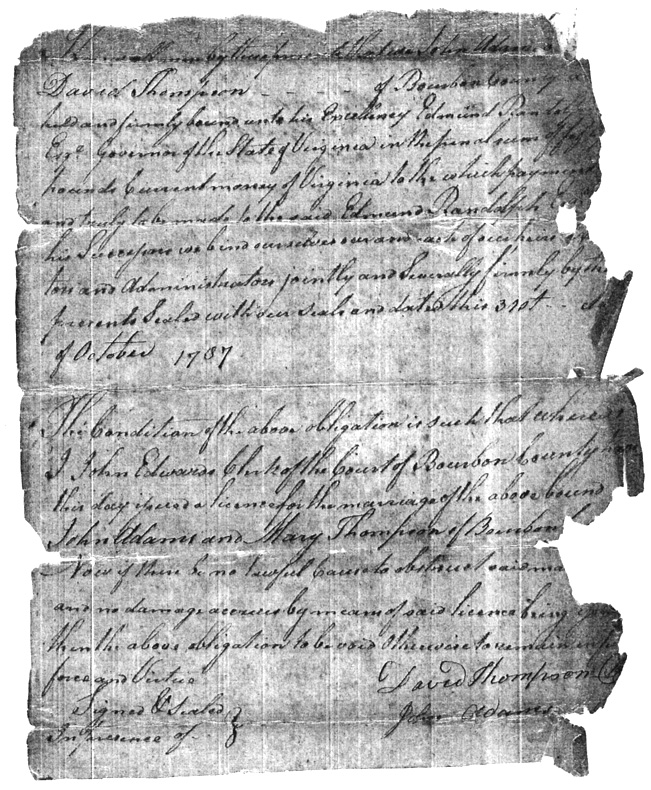 Know all men by these presents that we John Adams
David Thompson - - - - of Bourbon County
held and firmly bound unto his Excellency Edmund Randolph
Esqr. Governor of the State of Virginia in the penal sum of fifty
pounds Current money of Virginia to the which payment
and truly to be made to the said Edmund Randolph
his Successors we bind ourselves our and each of our heirs
tors and Administrators jointly and Severally firmly by the
presents Sealed with our Seals and dated this 31st
of October 1787
The Condition of the above obligation is such that whereas
I John Edwards Clerk of the Court of Bourbon County
this day issued a licence for the marriage of the above bound
John Adams and Mary Thompson of Bourbon
Now if there be no lawful Cause to obstruct said ma
and no damage accrues by means of said licence being
then the above obligation to be void Otherwise to remain in
force and Virtue
David Thompson
Signed & Sealed
John Adams
In Presence of